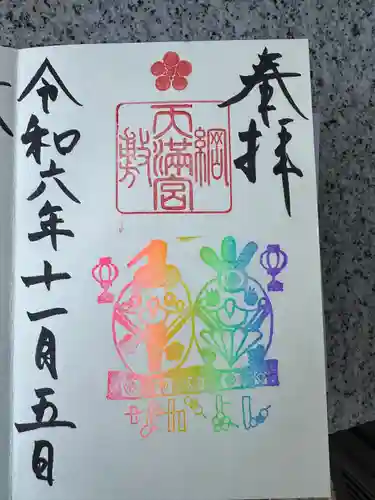 奉拝
綱敷天満宮
令和六年十一月五日